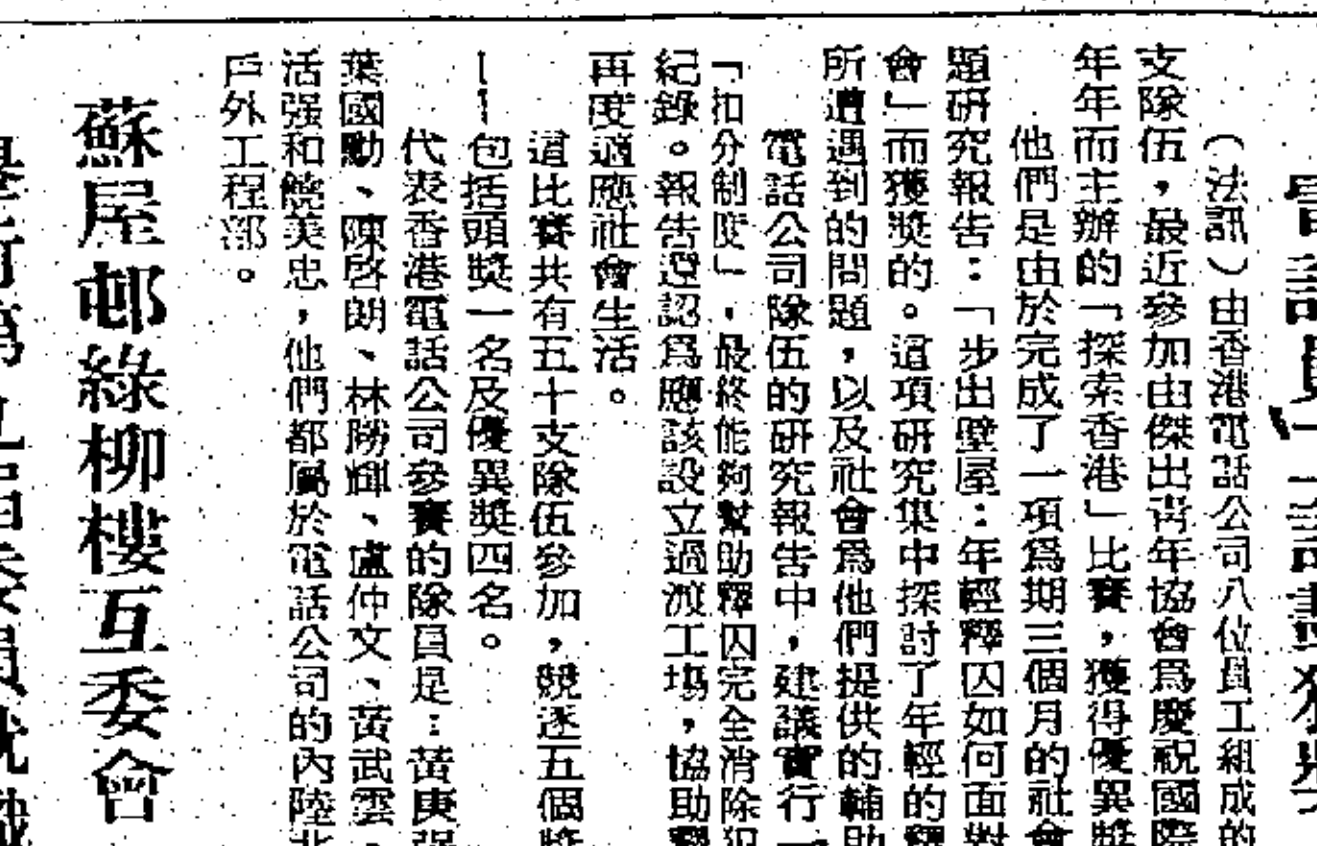 （法訊）由香港電話公司八位員工組成的
支隊伍，最近參加由傑出青年協會爲慶祝國際
年年而主辦的「探索香港」比賽，獲得優異獎
他們是由於完成了一項爲期三個月的社會
題研究報告：「步出壁屋：年輕釋囚如何面對
會」而獲獎的。這項研究集中探討了年輕的釋
所遭遇到的問題，以及社會爲他們提供的輔助
電話公司隊伍的研究報告中，建議實行一
「扣分制度」，最終能夠幫助釋囚完全消除犯
紀錄。報告還認爲應該設立過渡工場，協助釋
再度適應社會生活。
這比賽共有五十支隊伍參加，競逐五個獎
——包括頭獎一名及優異獎四名。
代表香港電話公司參賽的隊員是：黃庚强
葉國勳、陳啓朗、林勝輝、盧仲文、黃武雲、
活强和饒美忠，他們都屬於電話公司的內陸北
戶外工程部。
蘇屋邨綠柳樓互委會